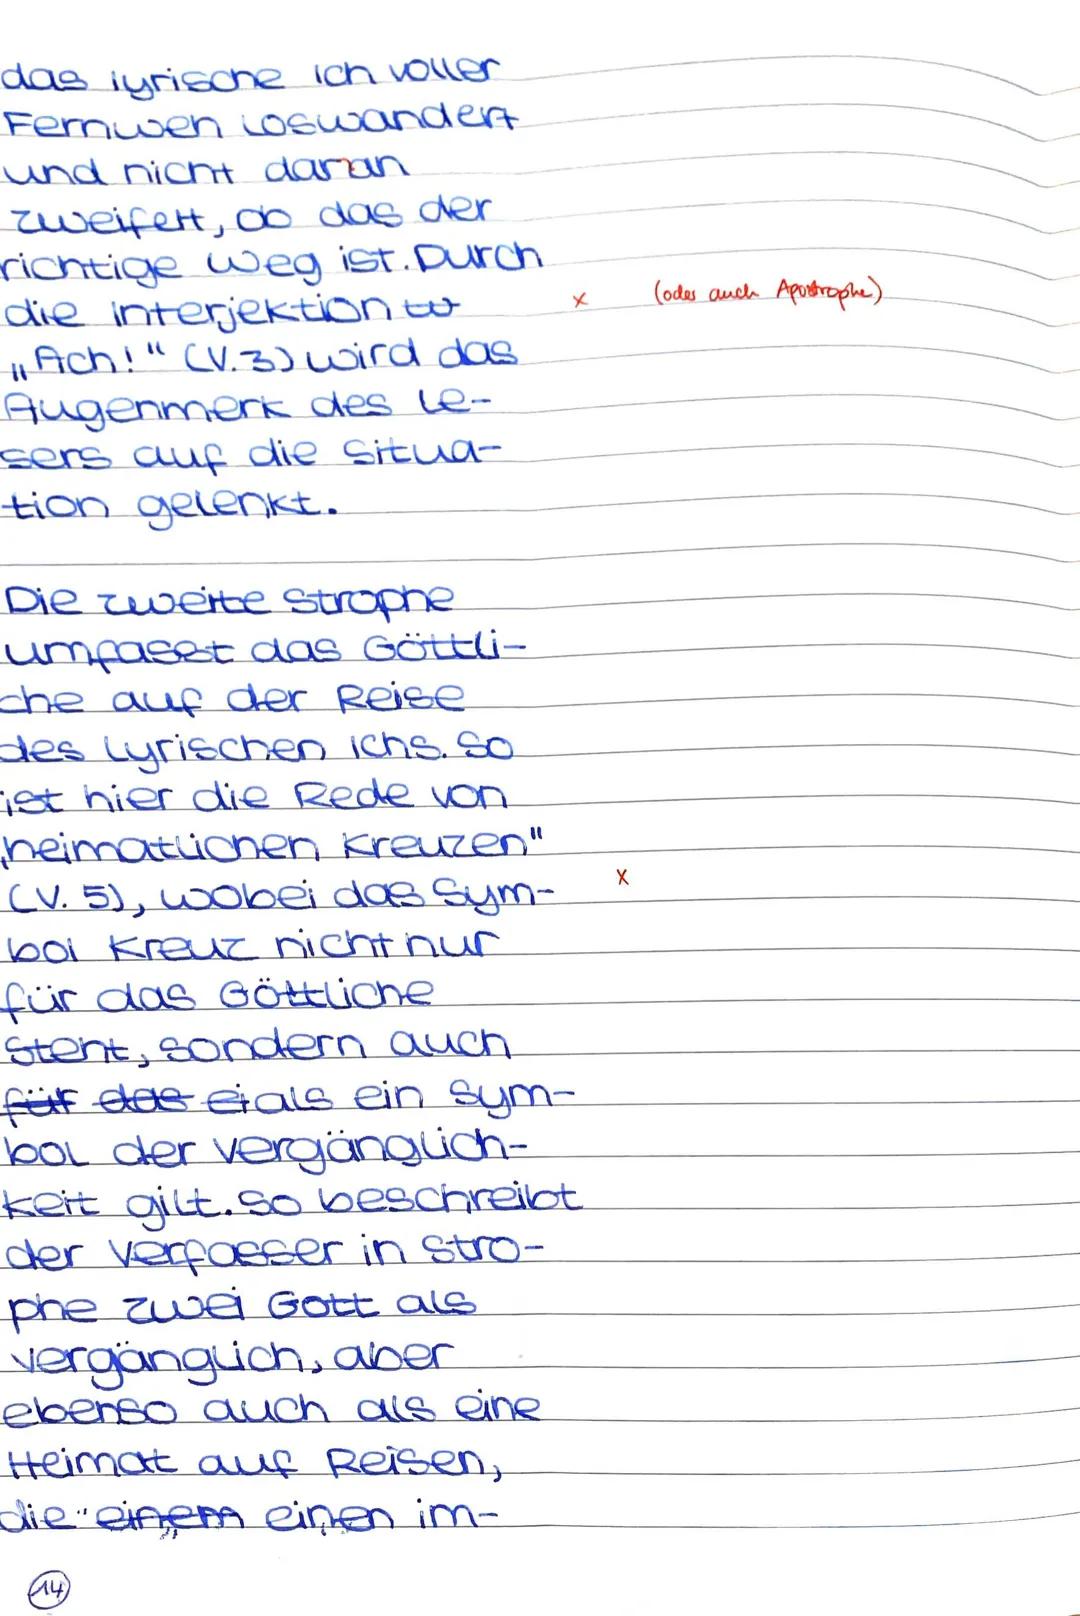 das lyrische Ich voller
Fernweh loswandert
und nicht daran
zweifelt, ob das der
richtige Weg ist. Durch
die Interjektion w
x (oder auch Apostrophe)
„Ach!“ (V. 3) wird das
Augenmerk des Le-
sers auf die Situa-
tion gelenkt.
Die zweite Strophe
umfasst das Göttli-
che auf der Reise
des Lyrischen Ichs. So
ist hier die Rede von
„heimatlichen Kreuzen"
(V. 5), wobei das Sym-
x
bol Kreuz nicht nur
für das Göttliche
steht, sondern auch
für das ei als ein Sym-
bol der Vergänglich-
keit gilt. So beschreibt
der Verfasser in Stro-
phe zwei Gott als
vergänglich, aber
ebenso auch als eine
Heimat auf Reisen,
die einem einen im-
14